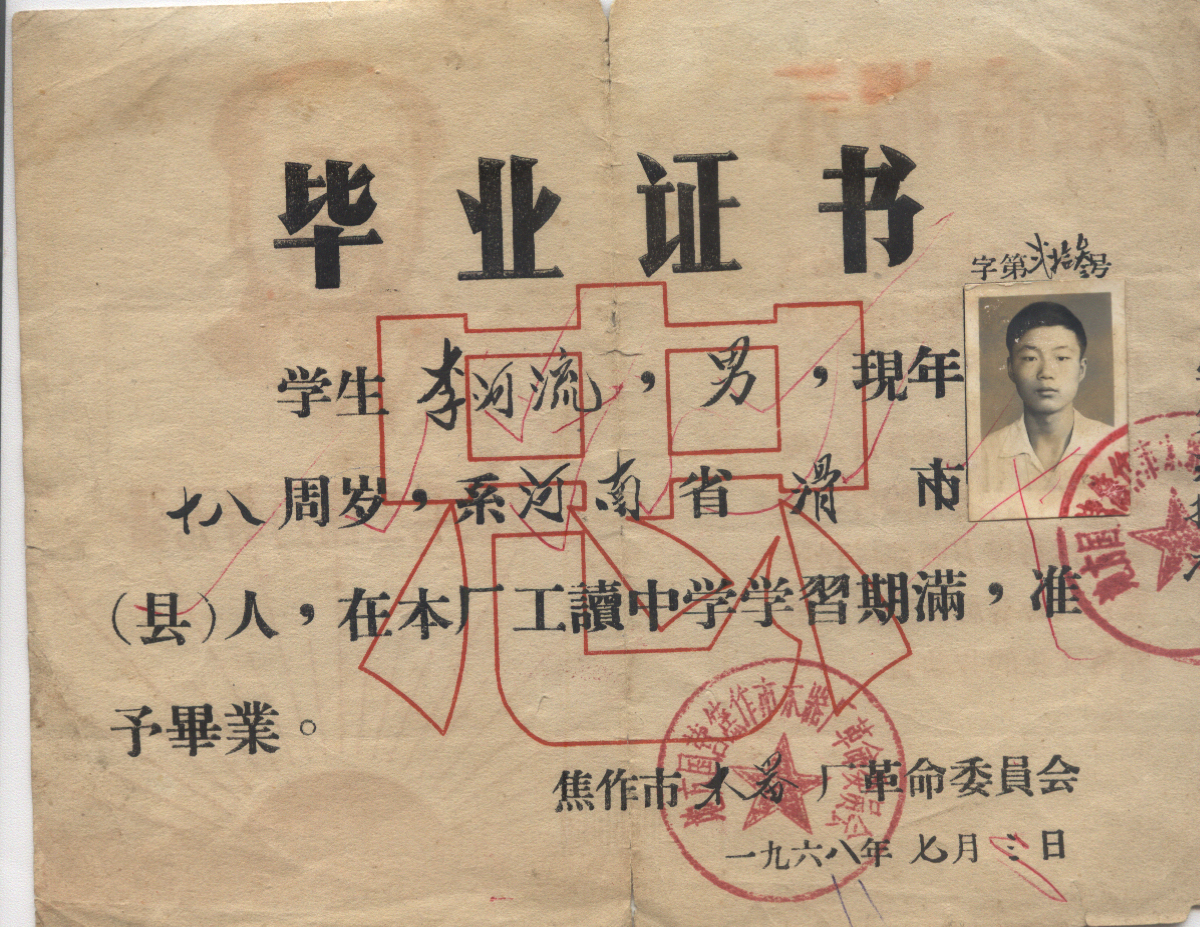 毕业证书
字第贰拾叁号
学生李河流，男，現年
十八周岁，系河南省滑市
（县）人，在本厂工讀中学学習期滿，准
予畢業。
忠
焦作市木器厂革命委員会
一九六八年七月三日
地方国营焦作市木器厂革命委员会
地方国营焦作市木器